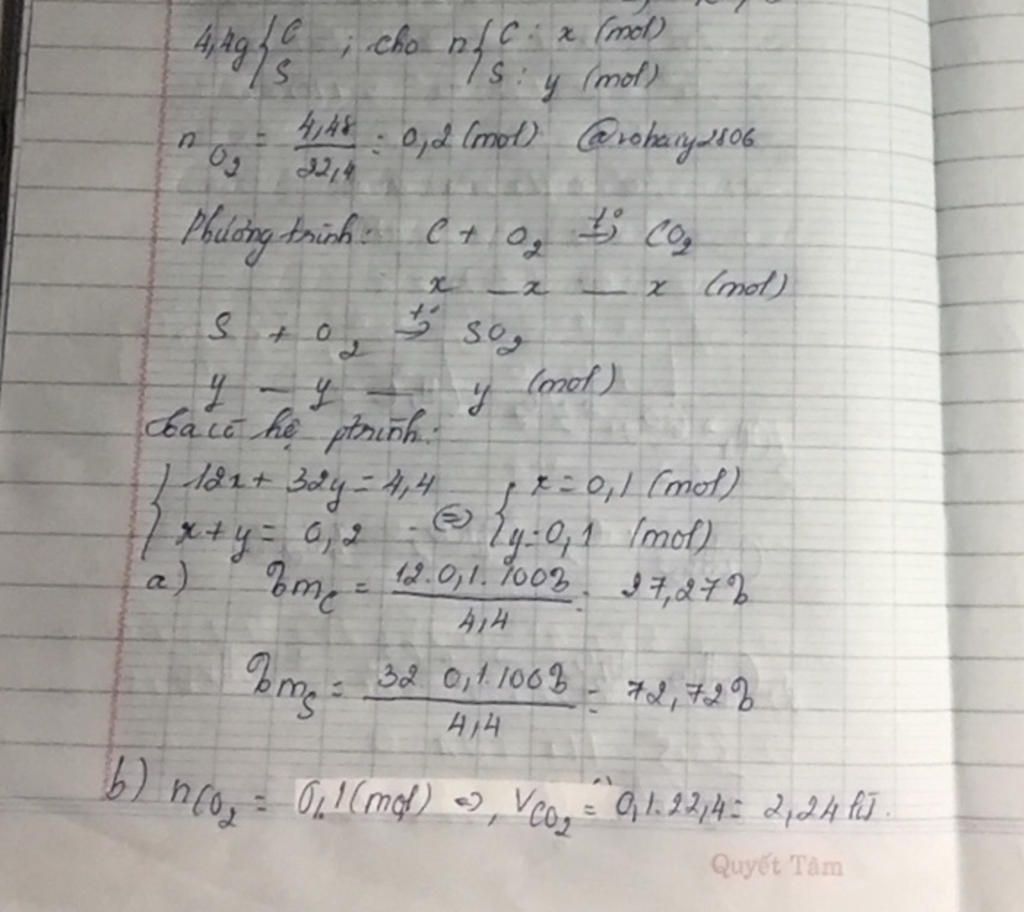 4,4g { C ; cho n { C : x (mol)
S S : y (mol)
n O₂ = 4,48 / 22,4 = 0,2 (mol) @rohary2806
Phương trình: C + O₂ t°→ CO₂
x — x — x (mol)
S + O₂ t°→ SO₂
y — y — y (mol)
Ta có hệ ptrình:
{ 12x + 32y = 4,4 { x = 0,1 (mol)
x + y = 0,2 (=) y = 0,1 (mol)
a) %m C = 12.0,1.100% / 4,4 = 27,27%
%m S = 32 0,1.100% / 4,4 = 72,72%
b) n CO₂ = 0,1 (mol) => V CO₂ = 0,1.22,4 = 2,24 lít.
Quyết Tâm